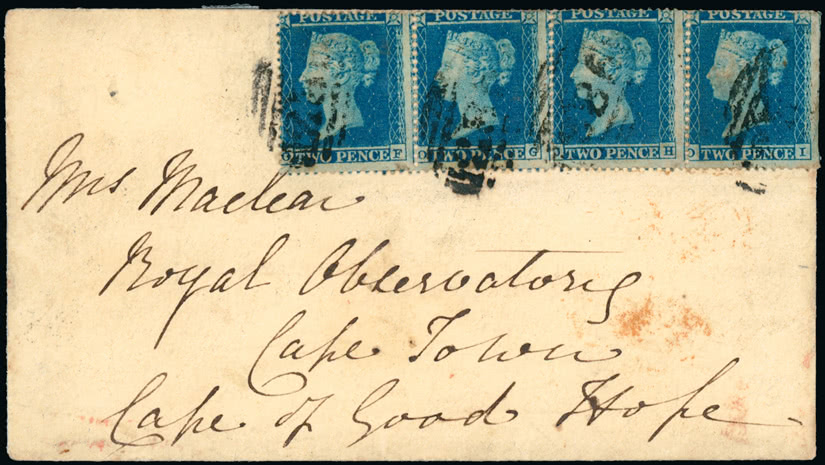 POSTAGE POSTAGE POSTAGE POSTAGE
TWO PENCE F TWO PENCE G TWO PENCE H TWO PENCE I
Mrs Maclear
Royal Observatory
Cape Town
Cape of Good Hope